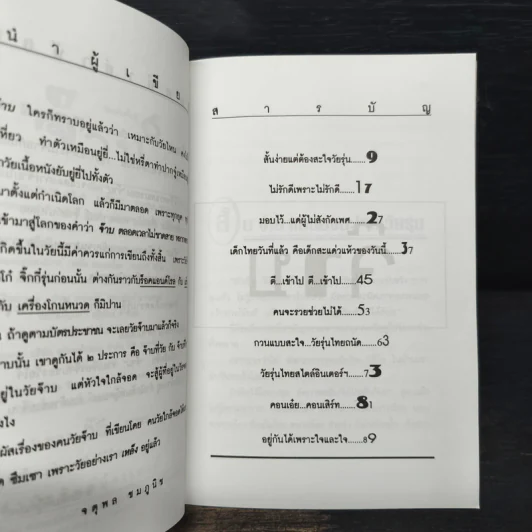 นำผู้เขีย
จ๊าบ ใครก็ทราบอยู่แล้วว่า เหมาะกับวัยไหน
เที่ยว ทำตัวเหมือนอยู่ยี่...ไม่ใช่หรี่ตาทำปากจู๋
วัยเนื้อหนังยับยู่ยี่ไปทั้งตัว
มาตั้งแต่กำเนิดโลก แล้วก็มีมาตลอด เพราะทุกยุค
เข้ามาสู่โลกของคำว่า จ๊าบ ตลอดเวลาไม่ขาดสาย
เกิดขึ้นในวัยนี้มีค่าควรแก่การเขียนถึงทั้งสิ้น เพราะวัย
โก๋ จิ๊กกี๋รุ่นก่อนนั้น ต่างกันราวกับร็อคแอนด์โรล กับ
กับ เครื่องโกนหนวด ก็มิปาน
ถ้าดูตามบัตรประชาชน จะเลยวัยจ๊าบมาแล้วก็จริง
จ๊าบนั้น เขาดูกันได้ ๒ ประการ คือ จ๊าบที่วัย กับ จ๊าบที่
อยู่ในวัยจ๊าบ แต่หัวใจใกล้จอด จะสู้ผู้ที่อยู่ในวัย
ไง
ผัสเรื่องของคนวัยจ๊าบ ที่เขียนโดย คนวัยใกล้จอด
ด ซึมเซา เพราะวัยอย่างเรา เหลือ อยู่แล้ว
จตุพล ชมภูนิช
สารบัญ
สั้นง่ายแต่ต้องสะใจวัยรุ่น.....9
ไม่รักดีเพราะไม่รักดี.....17
มอบไว้...แด่ผู้ไม่สังกัดเพศ.....27
เด็กไทยวันที่แล้ว คือเด็กสะแด่วแห้วของวันนี้.....37
ดี...เข้าไป ดี...เข้าไป.....45
คนจะรวยช่วยไม่ได้.....53
กวนแบบสะใจ...วัยรุ่นไทยถนัด.....63
วัยรุ่นไทยสไตล์อินเตอร์ฯ.....73
คอนเอ๋ย...คอนเสิร์ท.....81
อยู่กันได้เพราะใจและใจ.....89